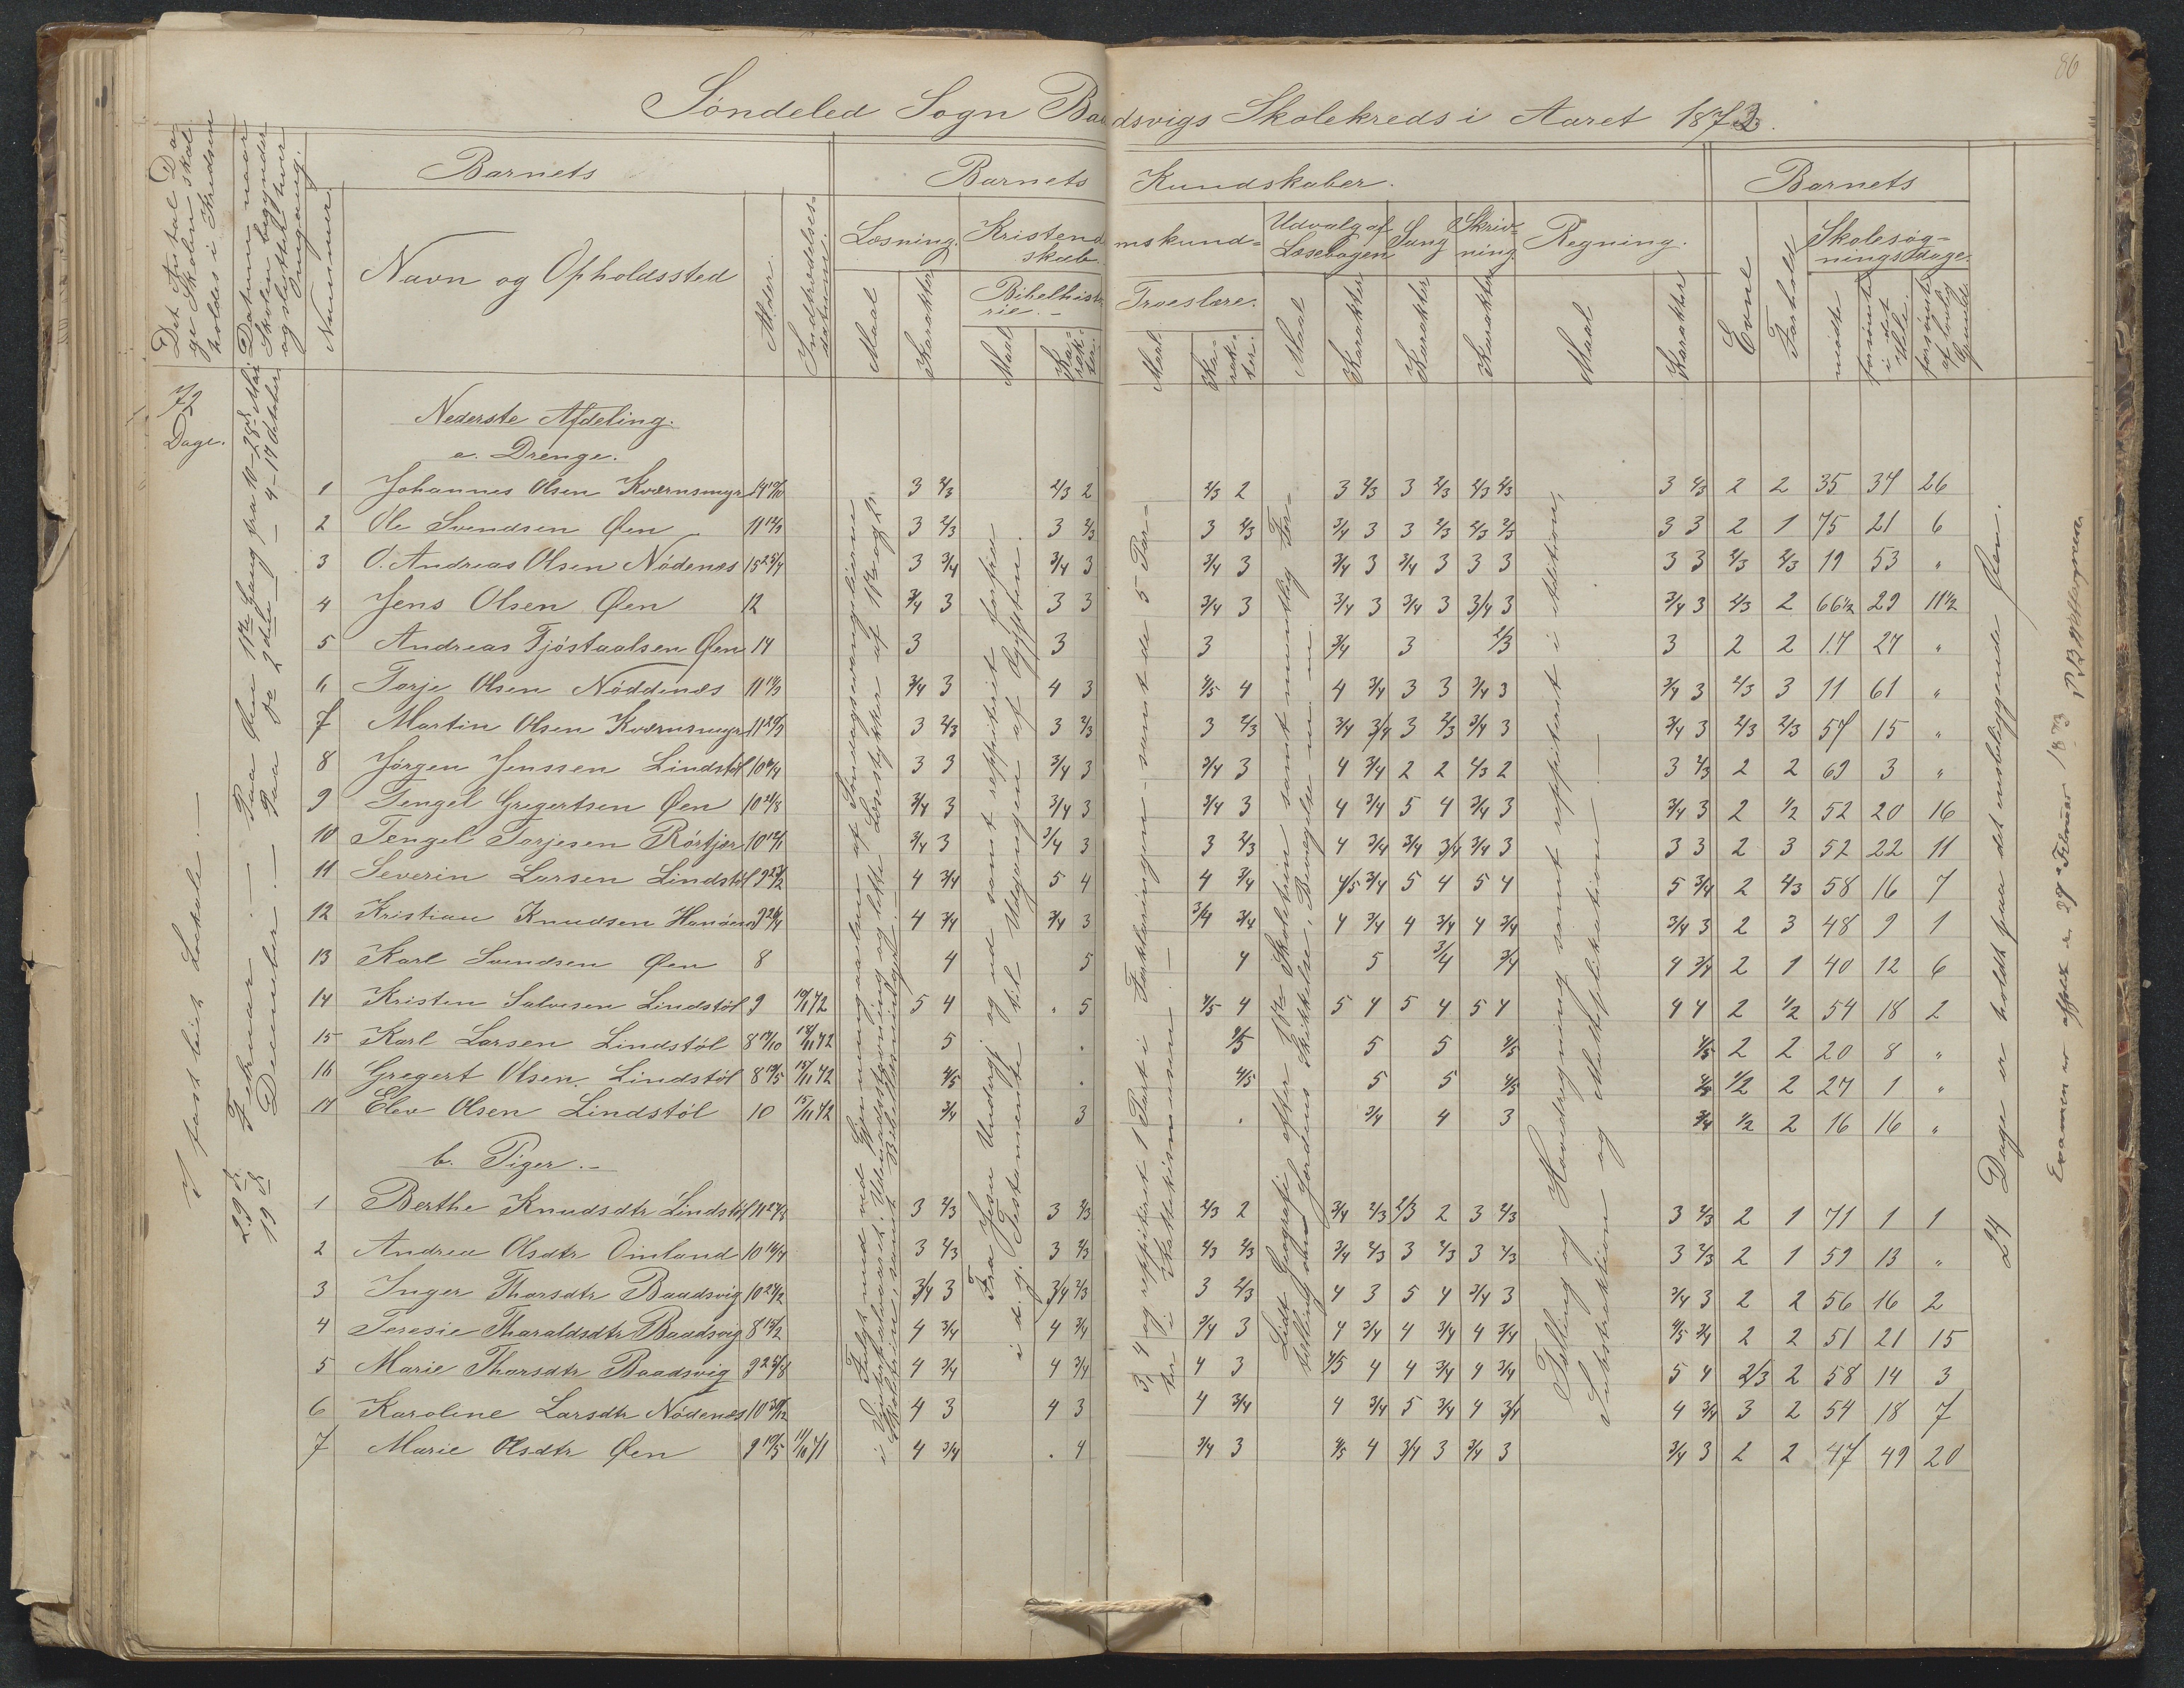 86
Søndeled Sogn Baadsvigs Skolekreds i Aaret 1873.
Det Antal Dage Skolen skal holdes i Kredsene
Datum naar Skolen begynder og slutter hver Omgang.
Nummer.
Barnets
Navn og Opholdssted
Alder.
Indtrædelsesdatum.
Barnets Kundskaber.
Læsning.
Maal
Karakter
Kristendomskundskab
Bibelhistorie.
Maal
Karakter.
Troeslære.
Maal.
Karakter.
Udvalg af Læsebogen
Maal
Karakter
Sang
Karakter
Skrivning
Karakter
Regning.
Maal
Karakter
Barnets
Evne
Forhold
Skolesøgningsdage.
mødte
forsømte i det Hele.
forsømte af lovlig Grund
72 Dage.
I fast leiet Lokale.
Paa Øen 1ste Gang fra 10-28de Mai.
Paa 2den 4-19 October
29de Februar.
19de December.
Nederste Afdeling.
a. Drenge.
1 Johannes Olsen Kværnsmyr 3 2/3 2/3 2 2/3 2 3 2/3 3 2/3 2/3 2/3 3 2/3 2 2 35 34 26
2 Ole Svendsen Øen 3 2/3 3 2/3 3 2/3 3/4 3 3 2/3 2/3 2/3 3 3 2 1 75 21 6
3 O. Andreas Olsen Nödenes 3 3/4 3/4 3 3/4 3 3/4 3 3/4 3 3 3 3 3 2/3 2/3 19 53 "
4 Jens Olsen Øen 12 3/4 3 3 3 3/4 3 3/4 3 3/4 3 3/4 3 3/4 3 2/3 2 66½ 29 11½
5 Andreas Tjöstaalsen Øen 14 3 3 3 3/4 3 2/3 3 2 2 17 27 "
6 Torje Olsen Nöddenæs 3/4 3 4 3 4/5 4 4 3/4 3 3 3/4 3 3/4 3 2/3 3 11 61 "
7 Martin Olsen Kværnsmyr 3 2/3 3 2/3 3 2/3 3/4 3/4 3 2/3 3/4 3 3/4 3 2/3 2/3 57 15 "
8 Jörgen Jenssen Lindstöl 3 3 3/4 3 3/4 3 4 3/4 2 2 2/3 2 3 2/3 2 2 69 3 "
9 Tengel Gregertsen Øen 3/4 3 3/4 3 3/4 3 4 3/4 5 4 3/4 3 3/4 3 2 1/2 52 20 16
10 Tengel Torjesen Rörtjær 3/4 3 3/4 3 3 2/3 4 3/4 3/4 3/4 3/4 3 3 3 2 3 52 22 11
11 Severin Larsen Lindstöl 4 3/4 5 4 4 3/4 4/5 3/4 5 4 5 4 5 3/4 2 2/3 58 16 7
12 Kristian Knudsen 4 3/4 3/4 3 3/4 3/4 4 3/4 4 3/4 4 3/4 3/4 3 2 3 48 9 1
13 Karl Svendsen Øen 8 4 5 4 5 3/4 3/4 4 3/4 2 1 40 12 6
14 Kristen Salvesen Lindstöl 9 10/11 72 5 4 . 5 4/5 4 5 4 5 4 5 4 4 4 2 1/2 54 18 2
15 Karl Larsen Lindstöl 8 19/10 18/11 72 5 . 4/5 5 5 4/5 4/5 2 2 20 8 "
16 Gregert Olsen Lindstöl 8 19/5 15/11 72 4/5 . 4/5 5 5 4/5 4/5 1/2 2 27 1 "
17 Elev Olsen Lindstöl 10 15/11 72 3/4 3 . 3/4 4 3 3/4 1/2 2 16 16 "
b. Piger.
1 Berthe Knudsdtr Lindstöl 3 2/3 3 2/3 2/3 2 3/4 2/3 2/3 2 3 2/3 3 2/3 2 1 71 1 1
2 Andrea Olsdtr Omland 3 2/3 3 2/3 2/3 2/3 3/4 2/3 3 2/3 3 2/3 3 2/3 2 1 59 13 "
3 Inger Tharsdtr Baadsvig 3/4 3 3/4 2/3 3 2/3 4 3 5 4 3/4 3 3/4 3 2 2 56 16 2
4 Teresie Tharaldsdtr Baadsvig 4 3/4 4 3/4 3/4 3 4 3/4 4 3/4 4 3/4 4/5 3/4 2 2 51 21 15
5 Marie Tharsdtr Baadsvig 4 3/4 4 3/4 4 3 4/5 4 4 3/4 4 3/4 5 4 2/3 2 58 14 3
6 Karoline Larsdtr Nödenes 4 3 4 3 4 3/4 4 3/4 5 3/4 4 3/4 4 3/4 3 2 54 18 7
7 Marie Olsdtr Øen 9 19/5 11/10 71 4 3/4 . 4 3/4 3 4/5 4 3/4 3 3/4 3 3/4 3 2 2 47 49 20
Fulgt med ved Gjennemgaaelsen af Söndagsevangelierne
i Vinterhalvaaret. Udenadstavning og lette Læsestykker af 1ste og 2den
Skoletrin, samt Bibellæsning.
Fra Jesu Undergj og ud samt repeteret forfra
i d. g. Testamente til Udgangen af Ægypten.
3, 4 og repeteret 1 Part i Forklaringen samt de 5 Parter i Katekismusen.
Lidt Geografi efter 1ste Skoletrin samt mundtlig Fortælling om Jordens Skikkelse, Bevægelse m. m.
Tælling og Hovedregning samt repiteret i Addition,
Subtraktion og Multiplikation
24 Dage er holdt paa det næstliggende Øen.
Examen er afholdt den 27de Februar 1873